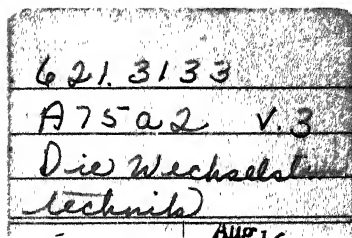 621.3133
A75a2 v.3
Die Wechselst
technik
Aug 16